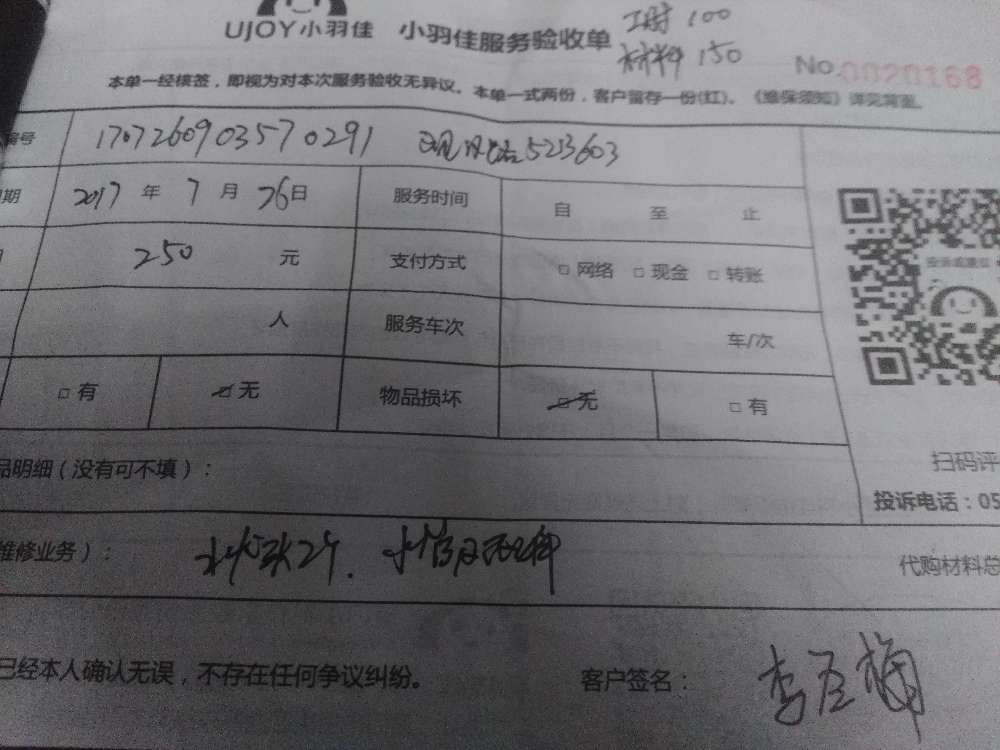 UJOY小羽佳 小羽佳服务验收单
工时 100
材料 150
No.0020168
本单一经核签，即视为对本次服务验收无异议。本单一式两份，客户留存一份(红)。《维保须知》详见背面。
编号 170726090357 0291 5213603
期 2017年7月26日 服务时间 自 至 止
250 元 支付方式 □网络 □现金 □转账
人 服务车次 车/次
□有 □无 物品损坏 □无 □有
品明细（没有可不填）：
扫码评
投诉电话：05
维修业务）： 水龙头2个. 水管及配件
代购材料总
已经本人确认无误，不存在任何争议纠纷。 客户签名：